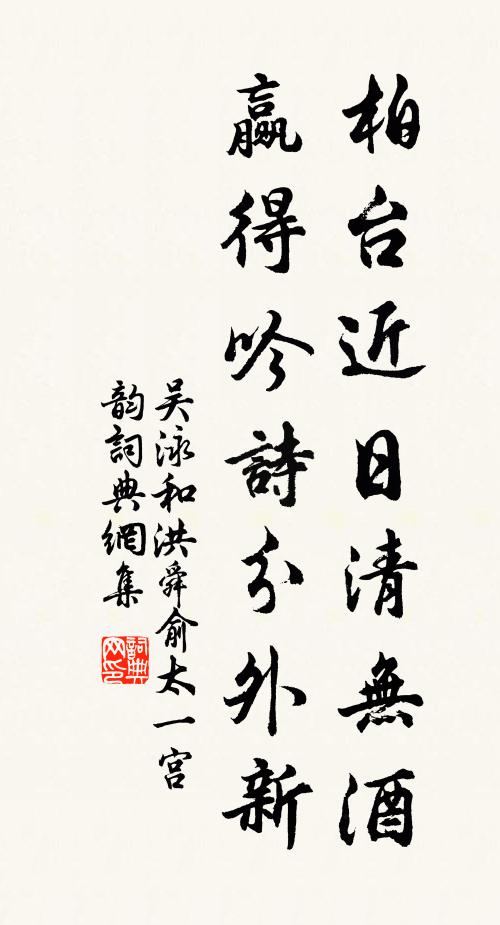 柏台近日清無酒
贏得吟詩分外新
吴泳和洪舜俞太一宮
韵詞典網集
詞典
网印